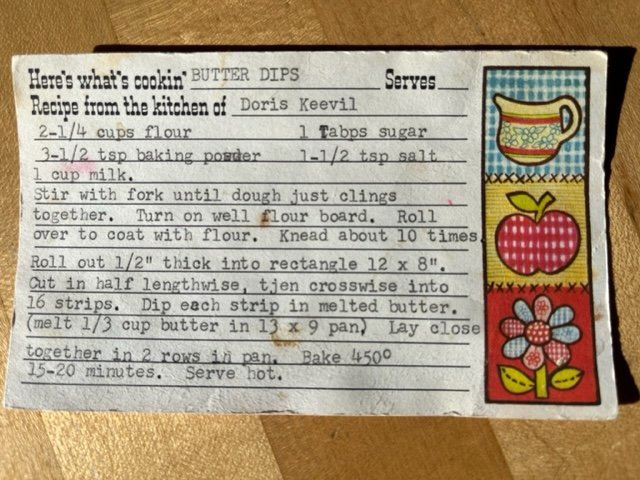 Here's what's cookin' BUTTER DIPS Serves
Recipe from the kitchen of Doris Keevil
2-1/4 cups flour 1 Tabps sugar
3-1/2 tsp baking powder 1-1/2 tsp salt
1 cup milk.
Stir with fork until dough just clings
together. Turn on well flour board. Roll
over to coat with flour. Knead about 10 times.
Roll out 1/2" thick into rectangle 12 x 8".
Cut in half lengthwise, tjen crosswise into
16 strips. Dip each strip in melted butter.
(melt 1/3 cup butter in 13 x 9 pan) Lay close
together in 2 rows in pan. Bake 450°
15-20 minutes. Serve hot.